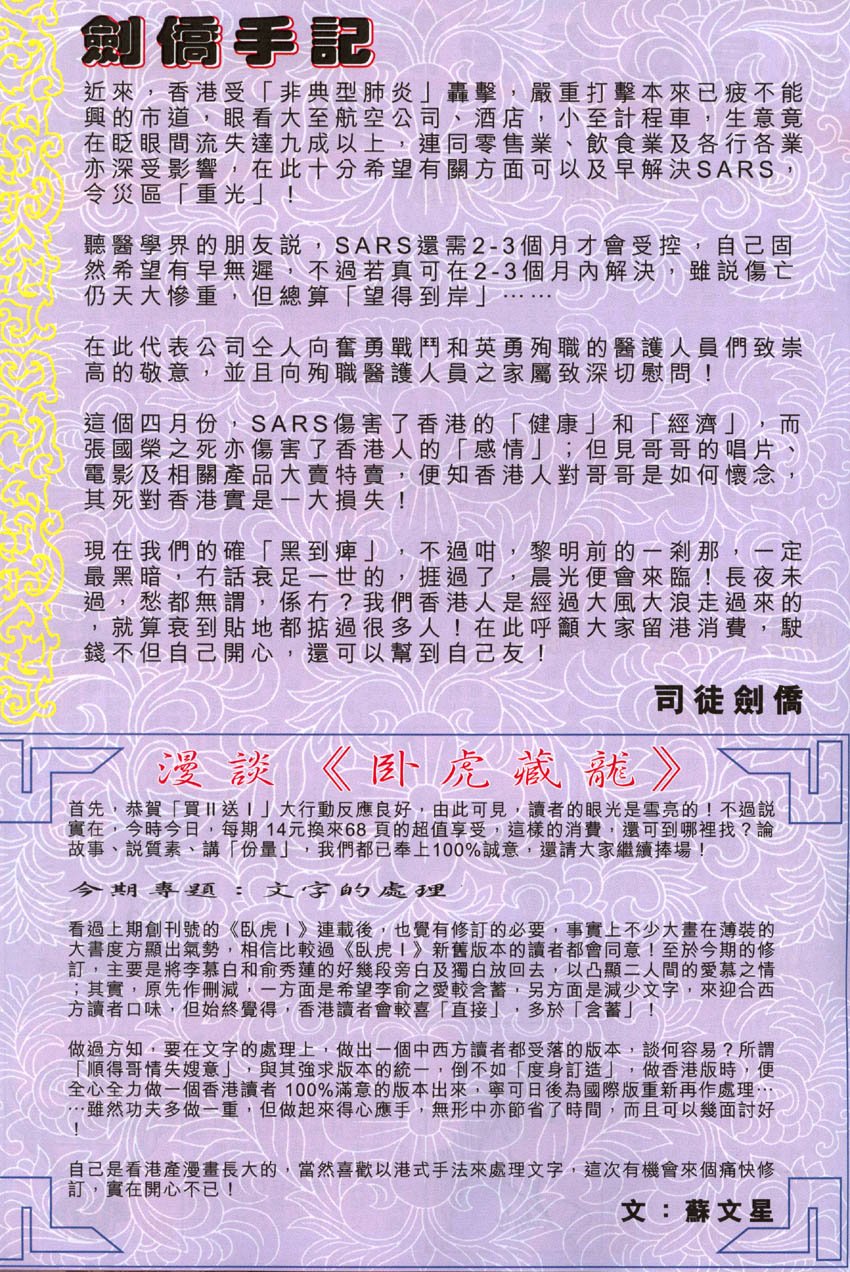 劍僑手記
近來，香港受「非典型肺炎」轟擊，嚴重打擊本來已疲不能
興的市道，眼看大至航空公司、酒店，小至計程車，生意竟
在眨眼間流失達九成以上，連同零售業、飲食業及各行各業
亦深受影響，在此十分希望有關方面可以及早解決SARS，
令災區「重光」！
聽醫學界的朋友説，SARS還需2-3個月才會受控，自己固
然希望有早無遲，不過若真可在2-3個月內解決，雖説傷亡
仍天大慘重，但總算「望得到岸」……
在此代表公司仝人向奮勇戰鬥和英勇殉職的醫護人員們致崇
高的敬意，並且向殉職醫護人員之家屬致深切慰問！
這個四月份，SARS傷害了香港的「健康」和「經濟」，而
張國榮之死亦傷害了香港人的「感情」；但見哥哥的唱片、
電影及相關產品大賣特賣，便知香港人對哥哥是如何懷念，
其死對香港實是一大損失！
現在我們的確「黑到痺」，不過咁，黎明前的一剎那，一定
最黑暗，冇話衰足一世的，捱過了，晨光便會來臨！長夜未
過，愁都無謂，係冇？我們香港人是經過大風大浪走過來的
，就算衰到貼地都掂過很多人！在此呼籲大家留港消費，駛
錢不但自己開心，還可以幫到自己友！
司徒劍僑
漫談《卧虎藏龍》
首先，恭賀「買II送I」大行動反應良好，由此可見，讀者的眼光是雪亮的！不過説
實在，今時今日，每期 14元換來68 頁的超值享受，這樣的消費，還可到哪裡找？論
故事、説質素、講「份量」，我們都已奉上100%誠意，還請大家繼續捧場！
今期專題：文字的處理
看過上期創刊號的《臥虎I》連載後，也覺有修訂的必要，事實上不少大畫在薄裝的
大書度方顯出氣勢，相信比較過《臥虎I》新舊版本的讀者都會同意！至於今期的修
訂，主要是將李慕白和俞秀蓮的好幾段旁白及獨白放回去，以凸顯二人間的愛慕之情
；其實，原先作刪減，一方面是希望李俞之愛較含蓄，另方面是減少文字，來迎合西
方讀者口味，但始終覺得，香港讀者會較喜「直接」，多於「含蓄」！
做過方知，要在文字的處理上，做出一個中西方讀者都受落的版本，談何容易？所謂
「順得哥情失嫂意」，與其強求版本的統一，倒不如「度身訂造」，做香港版時，便
全心全力做一個香港讀者 100%滿意的版本出來，寧可日後為國際版重新再作處理…
…雖然功夫多做一重，但做起來得心應手，無形中亦節省了時間，而且可以幾面討好
！
自己是看港產漫畫長大的，當然喜歡以港式手法來處理文字，這次有機會來個痛快修
訂，實在開心不已！
文：蘇文星